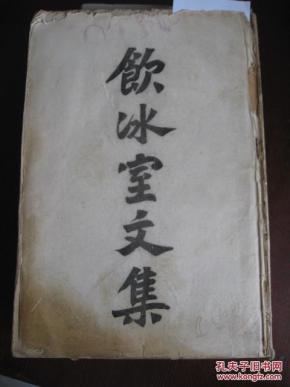 飲冰室文集
孔夫子旧书网